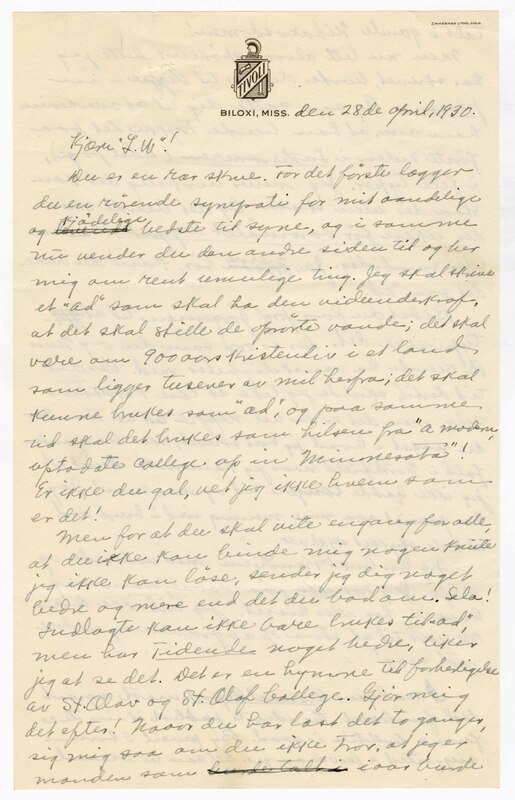 ZIMMERMAN LITHO. CO. N.O.
TIVOLI
BILOXI, MISS. den 28de april, 1930.
Kjære "L.W"!
Du er en rar skrue. For det förste lægger
du en rörende sympati for mit aandelige
og kjödelige bedste til syne, og i samme
nu vender du den andre siden til og ber
mig om rent umulige ting. Jeg skal skrive
et "ad" som skal ha den vidunderkraf,
at det skal stille de oprörte vande; det skal
være om 900 aars kristenliv i et land
som ligger tusener av mil herfra; det skal
kunne brukes som "ad", og paa samme
tid skal det brukes som hilsen fra "a modern,
uptodate college up in Minnesota"!
Er ikke du gal, vet jeg ikke hvem som
er det!
Men for at du skal vite engang for alle,
at du ikke kan binde mig nogen knute
jeg ikke kan löse, sender jeg dig noget
bedre og mere end det du bad om. Sela!
Indlagte kan ikke bare brukes til "ad",
men har Tidende noget bedre, liker
jeg at se det. Det er en hymne til forherligelse
av St. Olav og St. Olaf College. Gjör mig
det efter! Naar du har læst det to ganger,
sig mig saa om du ikke tror, at jeg er
manden som iaar burde